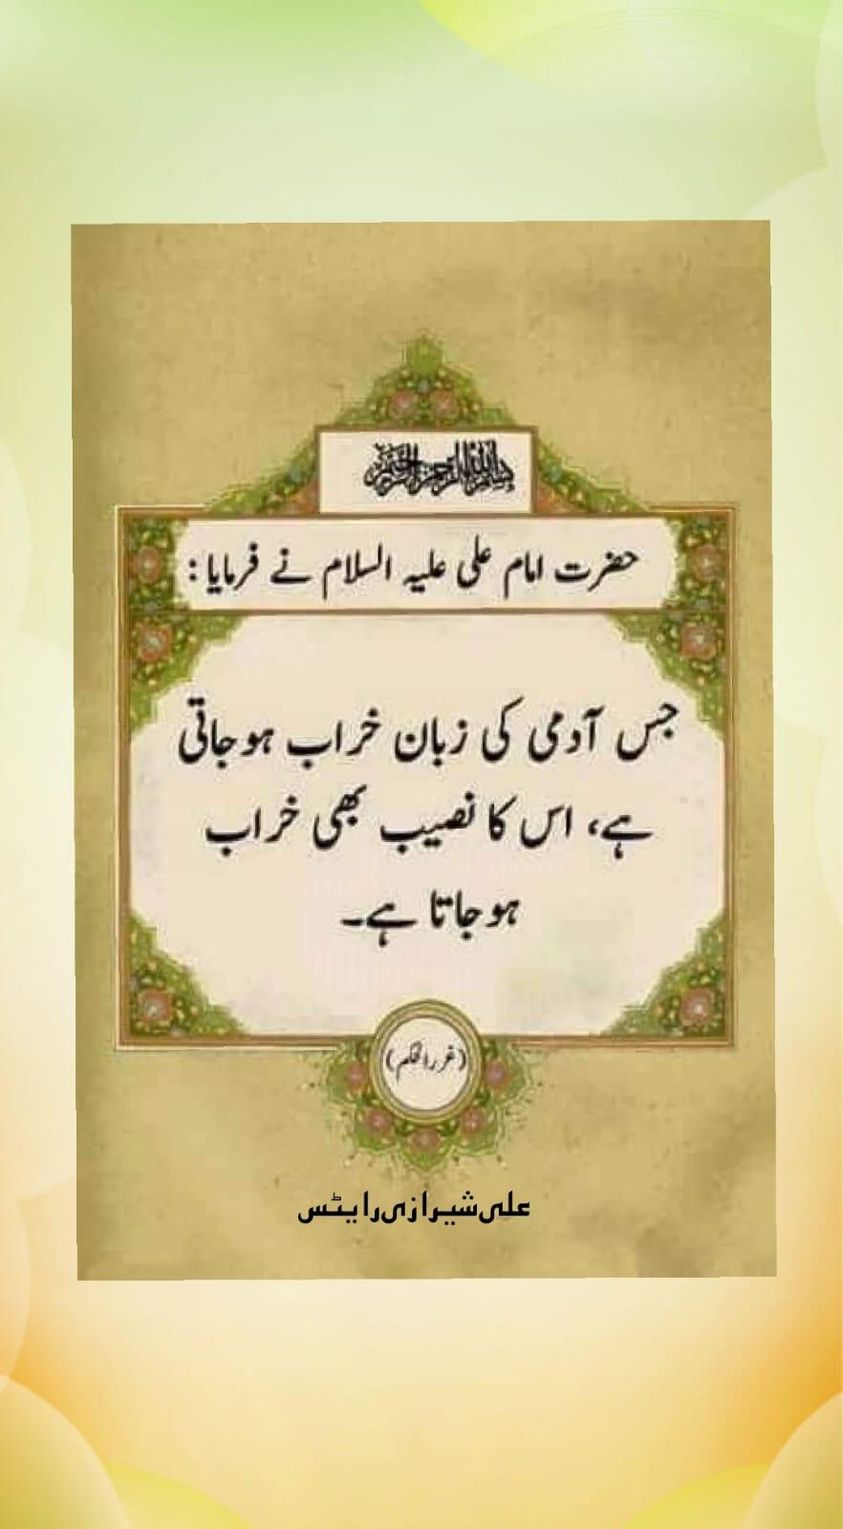 بسم الله الرحمن الرحیم
حضرت امام علی علیہ السلام نے فرمایا:
جس آدمی کی زبان خراب ہوجاتی
ہے، اس کا نصیب بھی خراب
ہوجاتا ہے۔
(غررالحکم)
علی شیرازی رایٹس